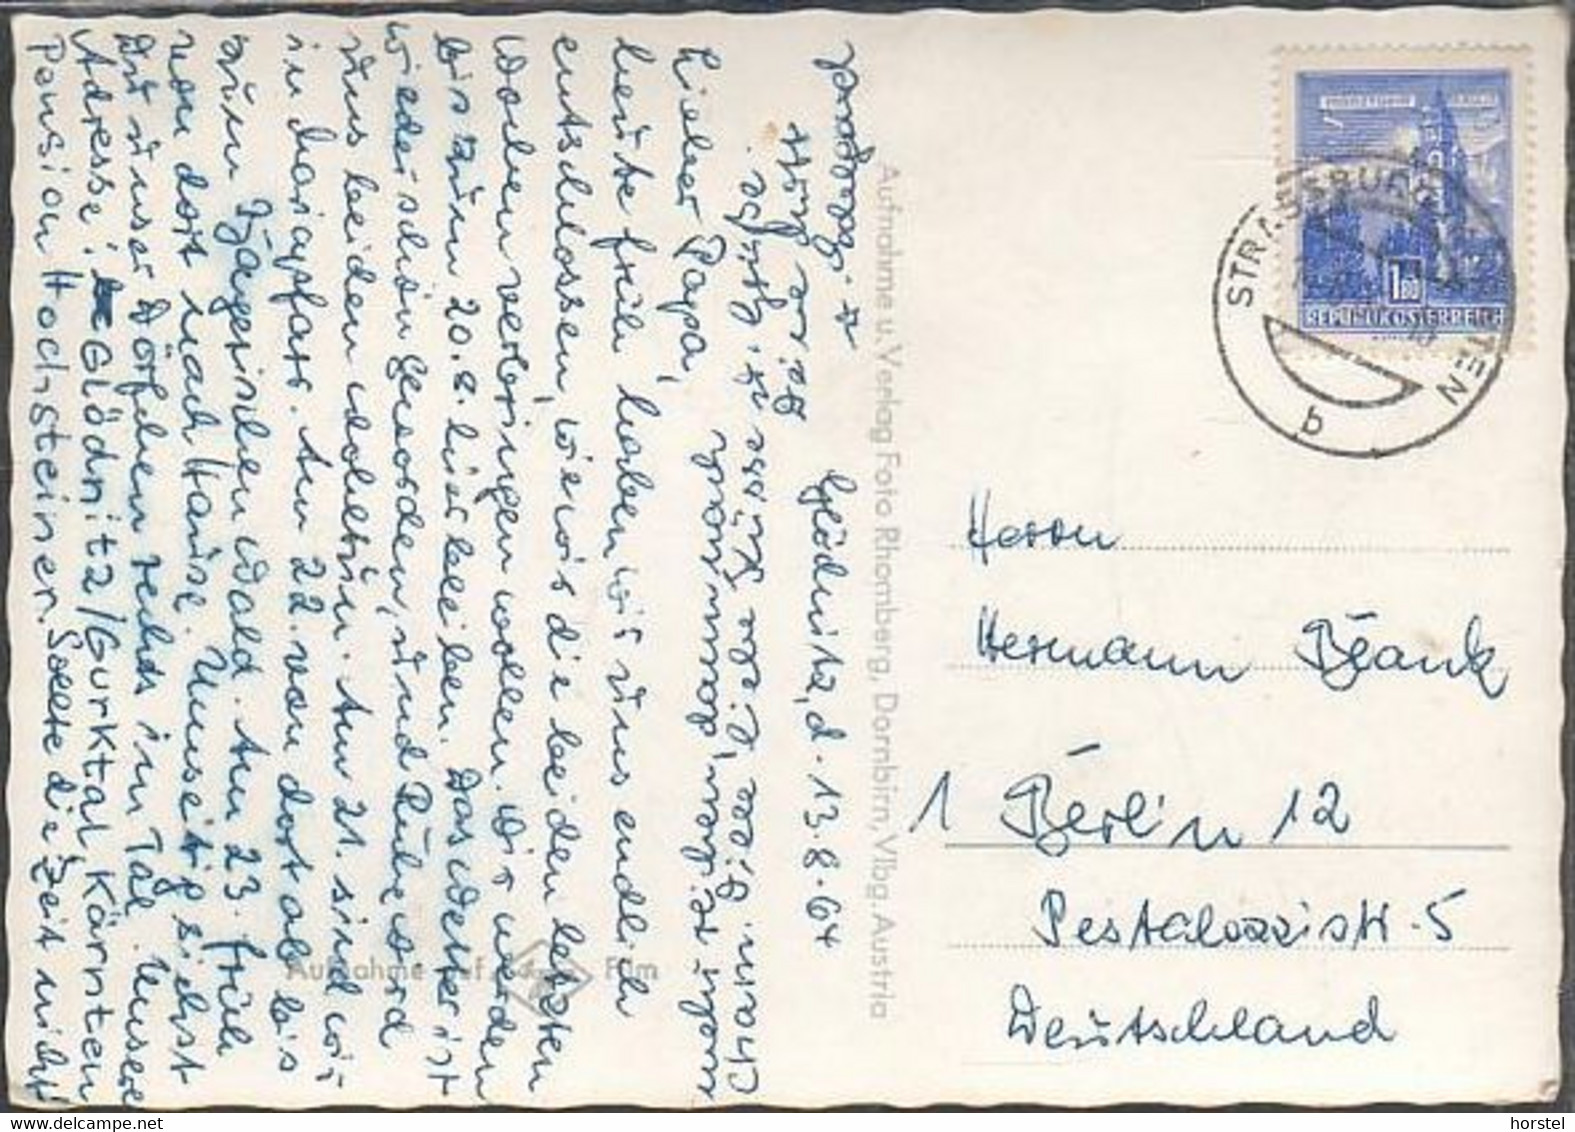 Glödnitz, d. 13.8.64
Lieber Papa,
heute früh haben wir uns endlich
entschlossen, wie wir die beiden letzten
Wochen verbringen wollen. Wir werden
bis zum 20.8. hier bleiben. Das Wetter ist
wieder schön geworden, und Ruhe wird
uns beiden wohltun. Am 21. sind wir
in Mariapfarr. Am 22. von dort ab bis
zum Bayerischen Wald. Am 23. früh
von dort nach Hause. Umseitig siehst
Du unser Dörfchen rechts im Tal. Unsere
Adresse: Glödnitz/Gurktal, Kärnten
Pension Hochsteiner. Sollte die Zeit nicht
Aufnahme auf Agfa Film
Aufnahme u. Verlag Foto Rhomberg, Dornbirn, Vlbg. Austria
REPUBLIK ÖSTERREICH
1.80
STRASSBURG
KÄRNTEN
b
Herrn
Hermann Blank
1 Berlin 12
Pestalozzistr. 5
Deutschland